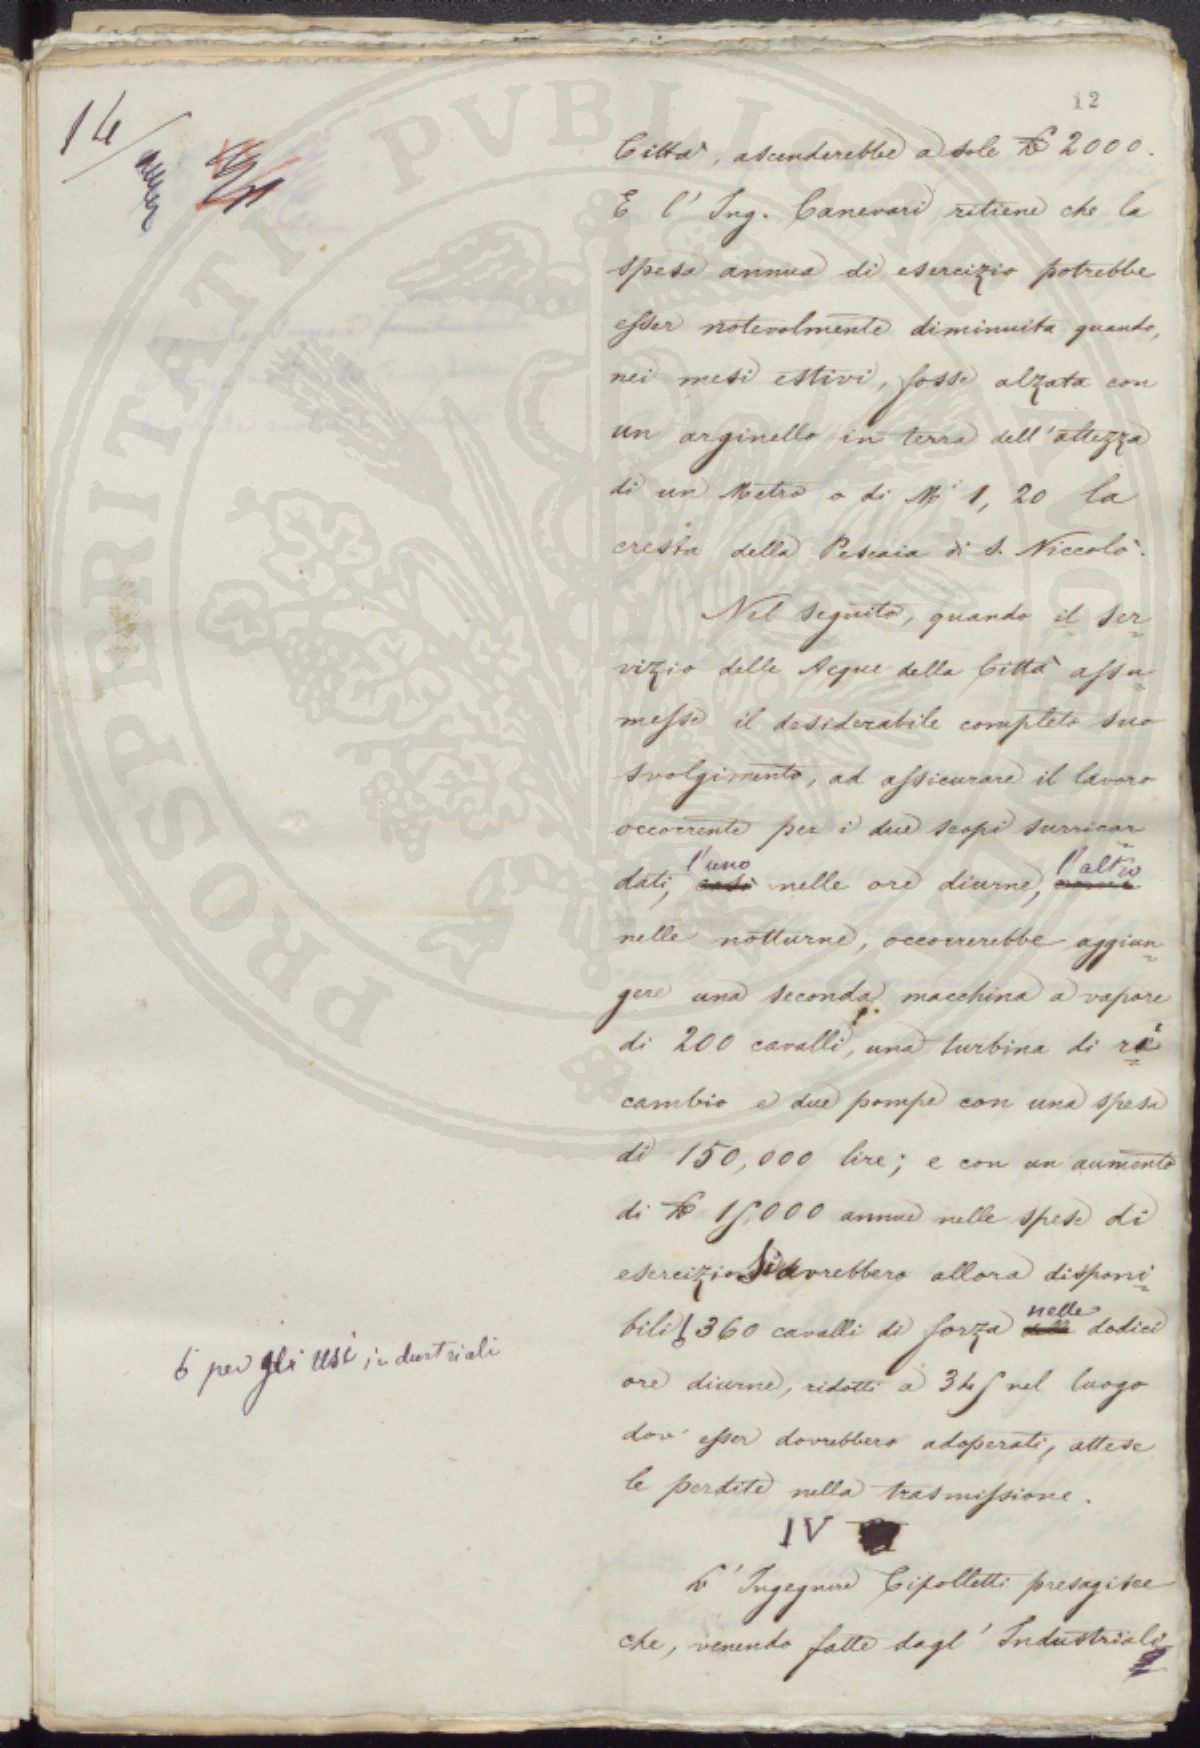 12
14
Città, ascenderebbe a sole £ 2000.
E l'Ing. Canevari ritiene che la
spesa annua di esercizio potrebbe
esser notevolmente diminuita quando,
nei mesi estivi, fosse alzata con
un arginello in terra dell'altezza
di un Metro o di Mi 1,20 la
cresta della Pescaia di S. Niccolò.
Nel seguito, quando il ser=
vizio delle Acque della Città assu=
messe il desiderabile completo suo
svolgimento, ad assicurare il lavoro
occorrente per i due scopi surricor=
l'uno l'altro
dati, così nelle ore diurne, come
nelle notturne, occorrerebbe aggiun=
gere una seconda macchina a vapore
di 200 cavalli, una turbina di ri=
cambio e due pompe con una spesa
di 150,000 lire; e con un aumento
di £ 15,000 annue nelle spese di
esercizio. Si avrebbero allora disponi=
nelle
bili 360 cavalli di forza delle dodici
per gli usi industriali
ore diurne, ridotti a 345 nel luogo
dov'esser dovrebbero adoperati, attese
le perdite nella trasmissione.
IV
L'Ingegnere Cipolletti presagisce
che, venendo fatte dagl'Industriali
PROSPERITATI PVBLICAE